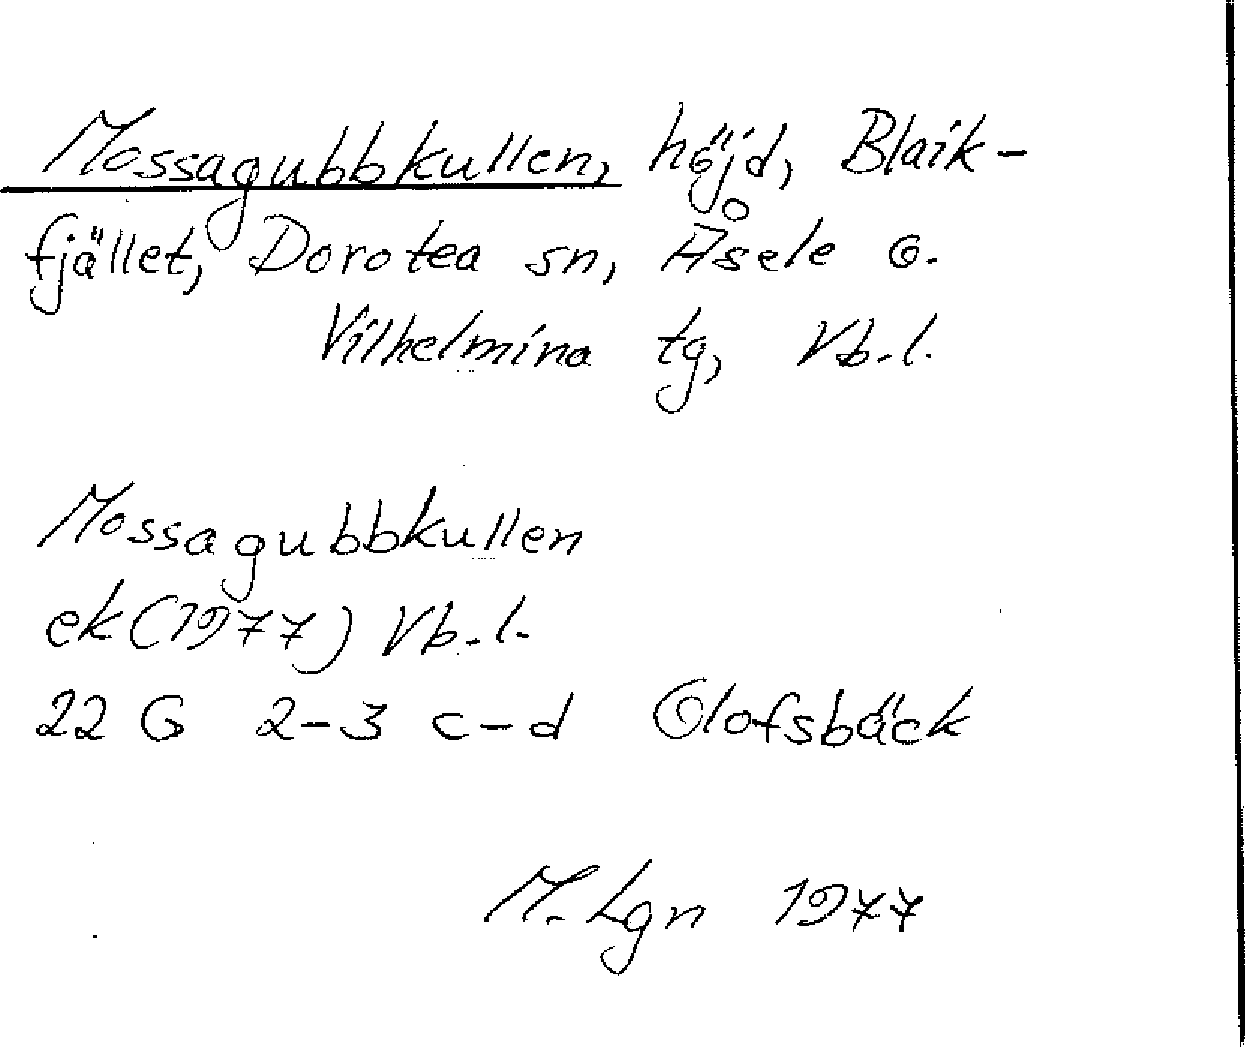 Mossagubbkullen, höjd, Blaik-
fjället, Dorotea sn, Åsele o.
Vilhelmina tg, Vb.l.
Mossagubbkullen
ek(1977) Vb.l.
22 G 2-3 c-d Olofsbäck
M. Lgn 1977